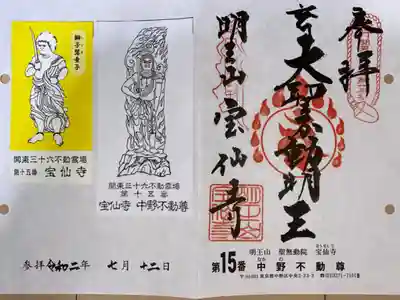 奉拝
大聖不動明王
明王山宝仙寺
明王山 聖無動院 宝仙寺
第15番 中野不動尊
獅子慧童子
関東三十六不動霊場
第十五番 宝仙寺
関東三十六不動霊場
第十五番
宝仙寺 中野不動尊
参拝 令和二年 七月 十二日